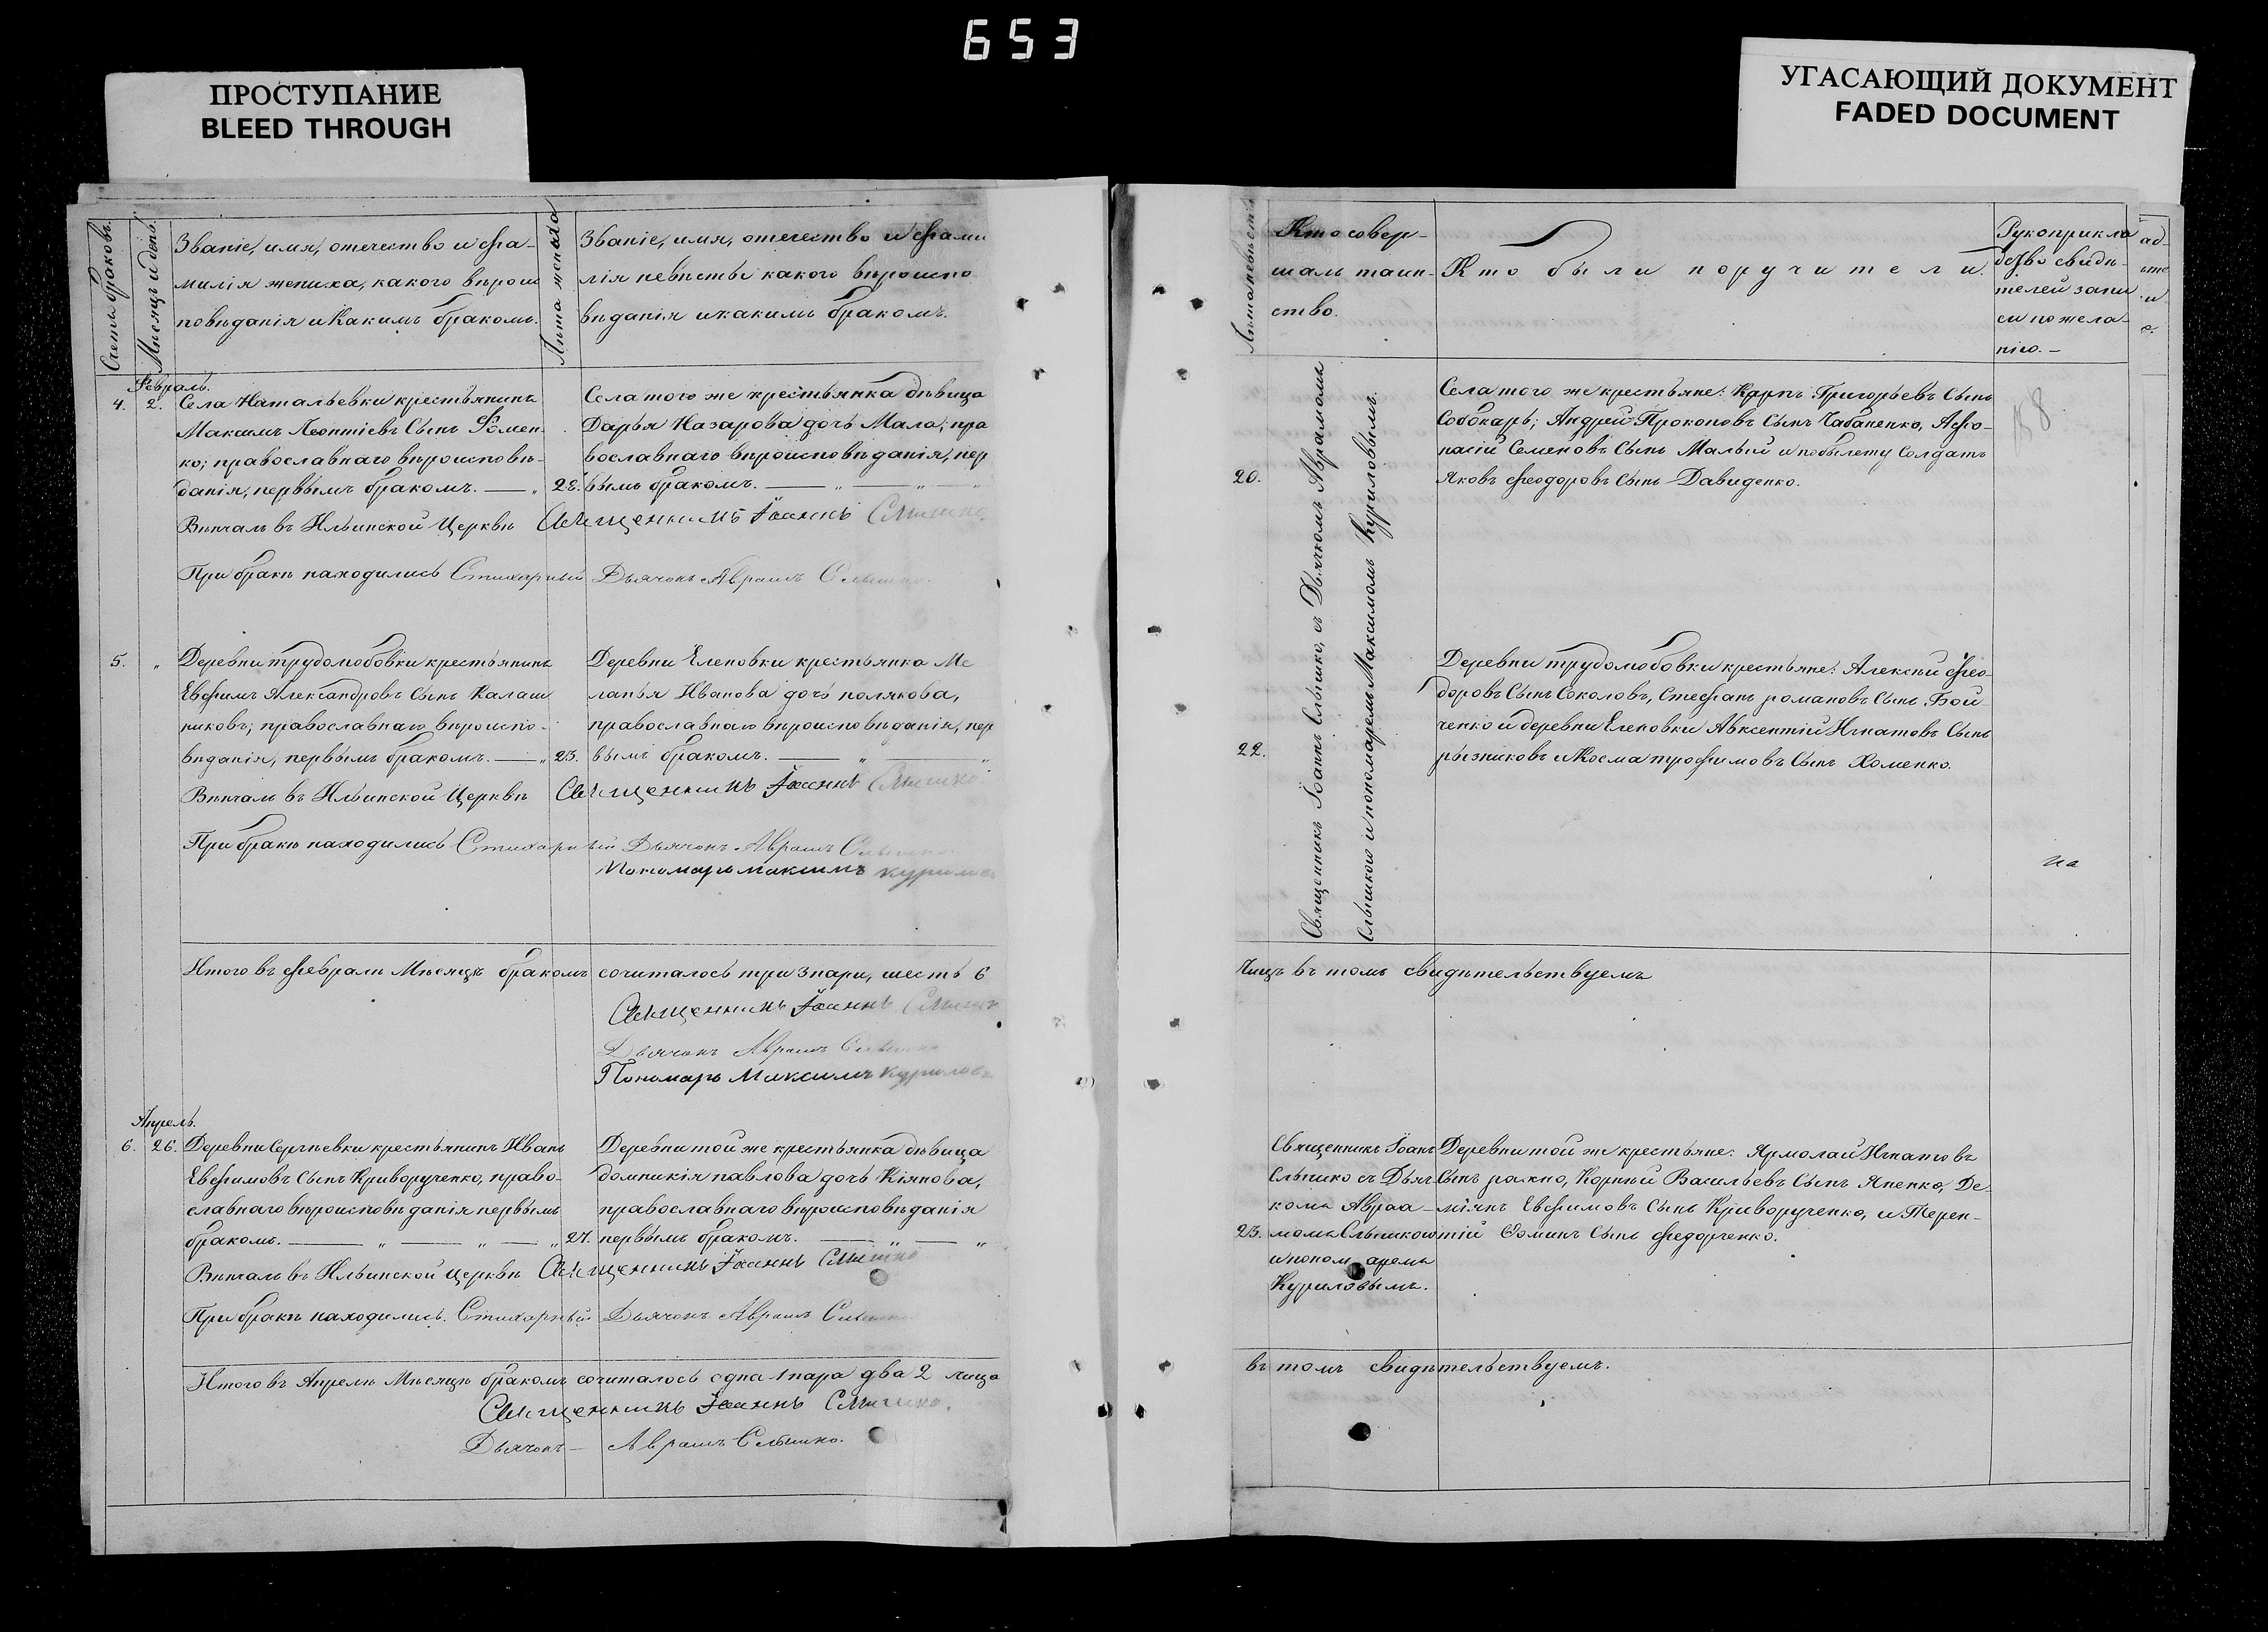 653
ПРОСТУПАНИЕ
BLEED THROUGH
УГАСАЮЩИЙ ДОКУМЕНТ
FADED DOCUMENT
Счетъ браковъ.
Мѣсяцъ и день.
Званіе, имя, отечество и фа-
милія жениха, какого вѣроис
повѣданія и Какимъ бракомъ.
Лѣта жениха
Званіе, имя, отечество и фами
лія невѣсты какого вѣроиспо-
вѣданія и какимъ бракомъ.
Февраль.
4. 2. Села Натальевки крестьянинъ
Максимъ Леонтіевъ Сынъ Фомен-
ко; православнаго вѣроисповѣ-
данія, первымъ бракомъ. — „ 22.
Села того же крестьянка дѣвица
Дарья Назарова дочь Мала; пра
вославнаго вѣроисповѣданія, пер
вымъ бракомъ. — „ — „ —
Вѣнчалъ въ Ильинской Церквѣ Священникъ Іоаннъ Слышко
При бракѣ находились Стихарный Дьячокъ Аврамъ Слышко.
5. „ Деревни трудолюбовки крестьянинъ
Евфимъ Александровъ Сынъ Калаш
никовъ; православнаго вѣроиспо-
вѣданія, первымъ бракомъ. — „ 23.
Деревни Еленовки крестьянка Ме
ланья Иванова дочь полякова,
православнаго вѣроисповѣданія, пер
вымъ бракомъ. — „ — „
Вѣнчалъ въ Ильинской Церквѣ Священникъ Іоаннъ Слышко
При бракѣ находились Стихарный Дьячокъ Аврамъ Слышко
Пономарь максимъ куриловъ
Итого въ феврали Мѣсяцѣ бракомъ сочиталось три 3 пари, шесть 6
Священникъ Іоаннъ Слышко
Дьячокъ Аврамъ Слышко
Пономарь Максимъ Куриловъ
Апрель.
6. 26. Деревни Сергѣевки крестьянинъ Иванъ
Евфимовъ Сынъ Криворученко, право-
славнаго вѣроисповѣданія первымъ
бракомъ. — „ — „ — „ 27.
Деревни той же крестьянка дѣвица
домникія павлова дочь Кіянова,
православнаго вѣроисповѣданія
первымъ бракомъ. — „ — „
Вѣнчалъ въ Ильинской церквѣ Священникъ Іоаннъ Слышко
При бракѣ находились. Стихарный Дьячокъ Аврамъ Слышко
Итого въ Апрели Мѣсяцѣ бракомъ сочиталось одна 1 пара два 2 лица
Священникъ Іоаннъ Слышко.
Дьячокъ — Аврамъ Слышко.
Лѣта невѣсты
Кто совер-
шалъ таин-
ство.
Кто были поручители.
Рукоприкла
дство свидѣ-
телей запи
си по жела-
нію. —
20.
Священникъ Іоаннъ Слышко, съ Дьячкомъ Аврамомъ
Слышкою и пономаремъ Максимомъ Куриловымъ.
Села того же крестьяне: Карпъ Григорьевъ Сынъ
Собокарь; Андрей Прокоповъ Сынъ Чабаненко, Афо-
насій Семеновъ Сынъ Малый и по билету Солдатъ
Яковъ феодоровъ Сынъ Давиденко.
22.
Деревни трудолюбовки крестьяне: Алексѣй фео-
доровъ Сынъ Соколовъ, стефанъ романовъ Сынъ Бой-
ченко и деревни Еленовки Авксентій Игнатовъ Сынъ
рызниковъ и Косма трофимовъ Сынъ Хоменко.
на
Лицъ въ томъ свидѣтельствуемъ
Священникъ Іоанъ
Слышко съ Дьяч
комъ Авраа-
23. момъ Слышкою
и понома​ремъ
Куриловымъ.
Деревни той же крестьяне: Ярмолай Игнатовъ
Сынъ рахно, Корнѣй Васильевъ Сынъ Яненко, Де-
міянъ Евфимовъ Сынъ Криворученко, и Терен-
тій Фоминъ Сынъ федорченко.
въ томъ свидѣтельствуемъ.